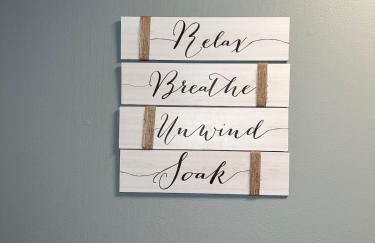 Relax
Breathe
Unwind
Soak